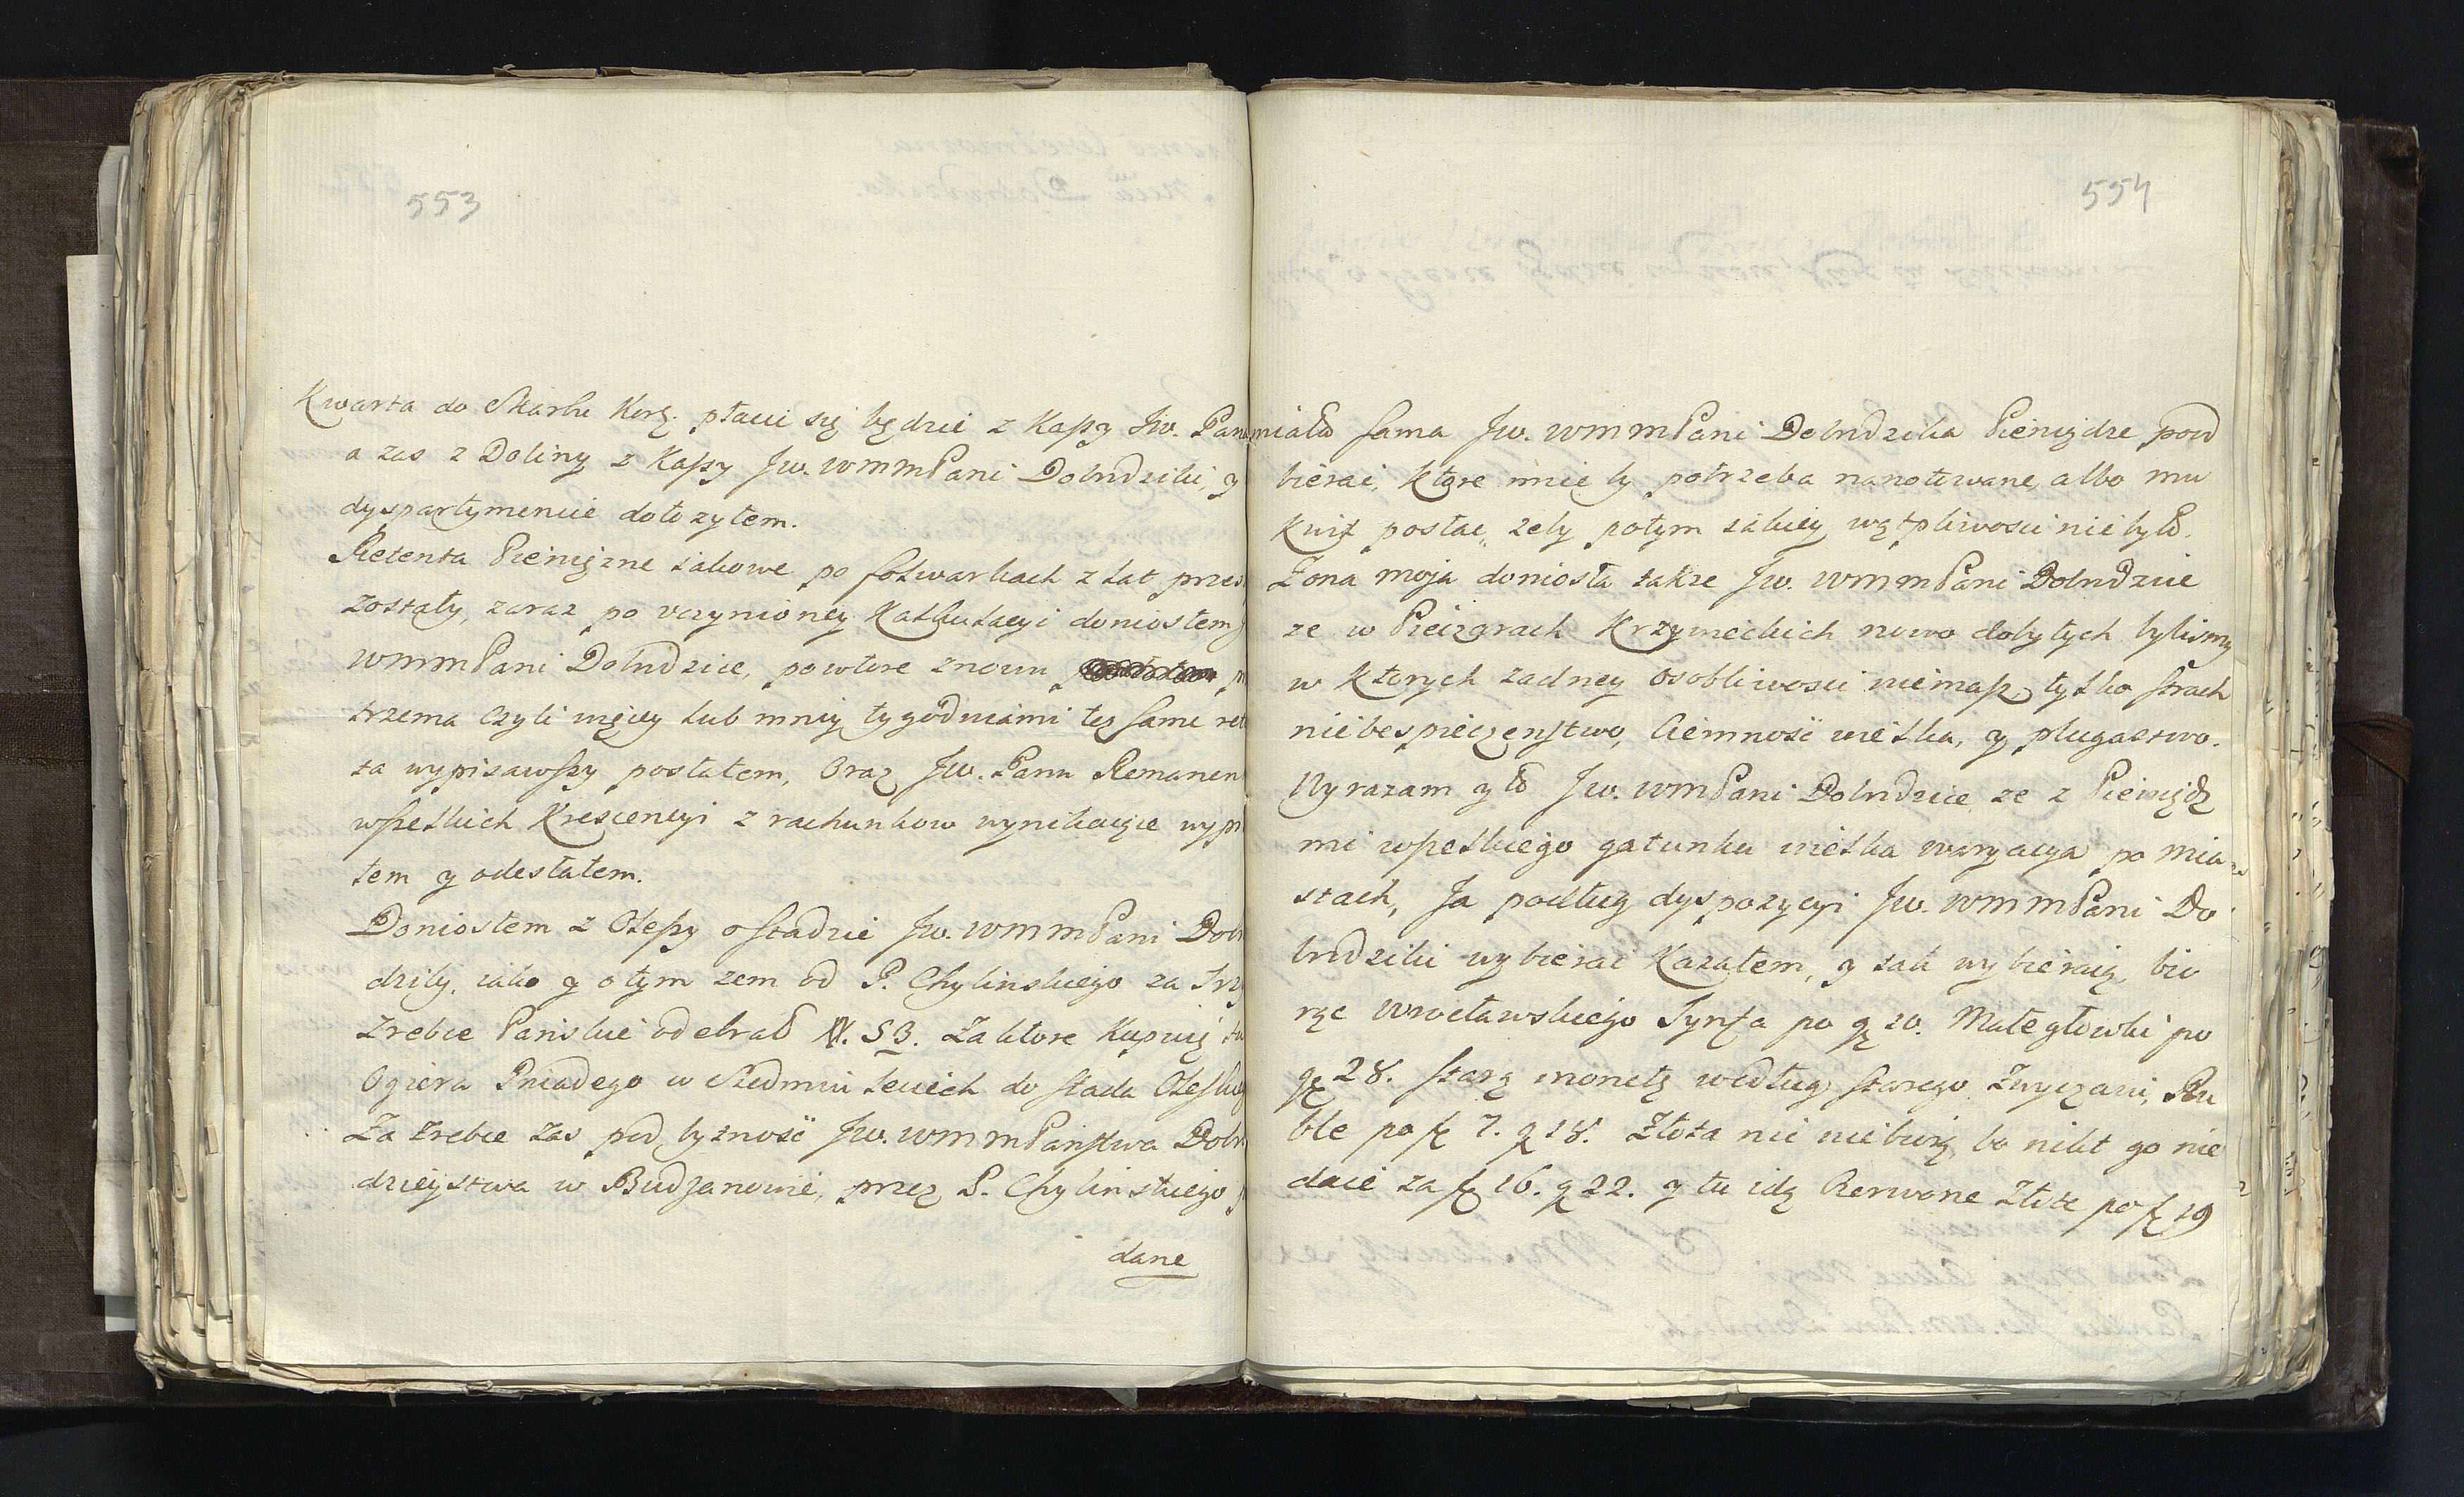 553
Kwarta do Skarbu Korz. płacić się będzie z Kaſsy Jw. Pana
a zas z Doliny z Kaſsy Jw. WmmPani Dobrodziki, y
dyspartymencie dołozyłem.
Retenta Pienięzne iakowe po folwarkach z lat przesz
zostały, zaraz po vczynioney Kalkulacyi doniosłem J
WmmPani Dobrodzice, powtore znowu
trzema czyli więcy lub mniy tygodniami tęż same reten
ta wypisawſzy posłałem, Oraz Jw. Panu Remanen
wſzelkich Krescencyi z rachunkow wynikaiące wypi
łem y odesłałem.
Doniosłem z Oleſzy o stadzie Jw. WmmPani Dobr
dziky, iako y o tym zem od P. Chylinskiego za trzy
Zrebce Pańskie odebrał N. 53. Za ktore Kupuię tu
Ogiera Gniadego w Siedmiu leciech do stada Oleskieg
Za Zrebce zas pod bytność Jw. WmmPaństwa Dobro
dzieystwa w Budzanowie, przez P. Chylinskiego
dane
554
miała sama Jw. WmmPani Dobrodzika Pieniądze pood
bierać, Ktore mnie by potrzeba nanotowane, albo mu
Kwit posłać, zeby potym iakiey wątpliwosci nie było.
Zona moja doniosła także Jw. WmmPani Dobrodzice
ze w Pieczarach Krzywieckich nowo dobytych bylismy
w Ktorych zadney osobliwosci niemaſz, tylko strach
niebespieczenstwo, Ciemność wielka, y plugastwo.
Wyrazam y to Jw. WmPani Dobrodzice ze z Pieniędz
mi wſzelkiego gatunku wielka waryacya po mia-
stach, Ja podług dyspozycyi Jw. WmmPani Do
brodziki wybierać Kazałem, y tak wybieraią, bio
rąc Wrocławskiego Tynfa po gr 20. Małegłowki po
gr 28. starą monetę według starego Zwyczaiu, Ru
ble po f 7. gr 18. Złota nic niebiorą, bo nikt go nie
daie za f 16. gr 22. y tu idą Czerwone Złote po f 19